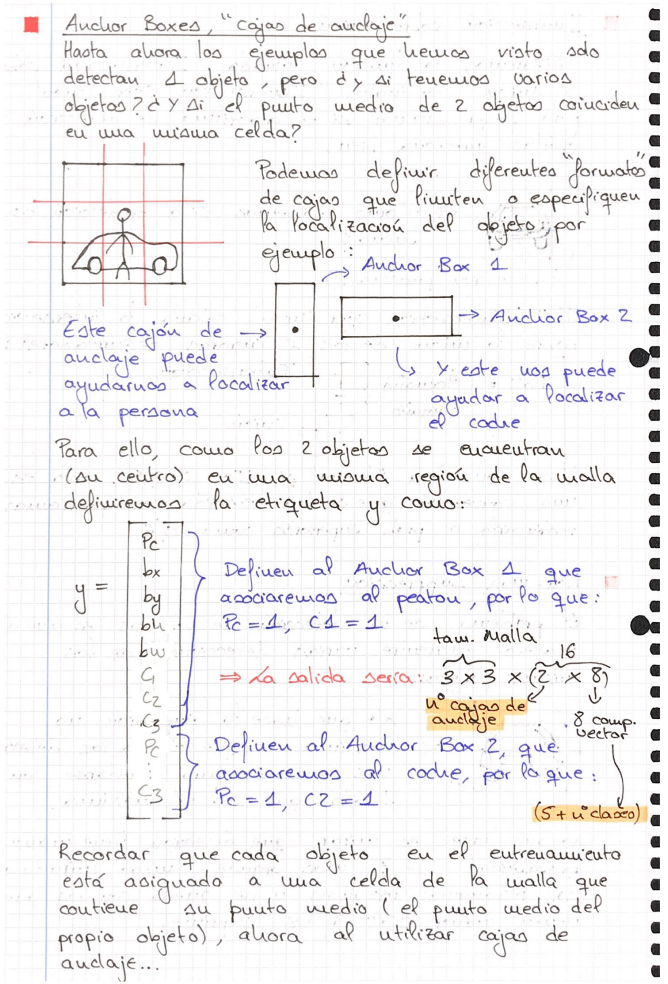 Anchor Boxes, "cajas de anclaje"
Hasta ahora los ejemplos que hemos visto solo
detectan 1 objeto, pero ¿y si tenemos varios
objetos? ¿Y si el punto medio de 2 objetos coinciden
en una misma celda?
Podemos definir diferentes "formatos"
de cajas que limiten o especifiquen
la localización del objeto, por
ejemplo:
Anchor Box 1
Anchor Box 2
Este cajón de
anclaje puede
ayudarnos a localizar
a la persona
Y este nos puede
ayudar a localizar
el coche
Para ello, como los 2 objetos se encuentran
(su centro) en una misma región de la malla
definiremos la etiqueta y como:
y =
Pc
bx
by
bh
bw
C1
C2
C3
Pc
⋮
C3
Definen al Anchor Box 1 que
asociaremos al peaton, por lo que:
Pc = 1, C1 = 1
tam. Malla
16
⇒ La salida sería: 3 x 3 x (2 x 8)
nº cajas de
anclaje
8 comp.
vector
Definen al Anchor Box 2, que
asociaremos al coche, por lo que:
Pc = 1, C2 = 1
(5 + nº clases)
Recordar que cada objeto en el entrenamiento
está asignado a una celda de la malla que
contiene su punto medio (el punto medio del
propio objeto), ahora al utilizar cajas de
anclaje...